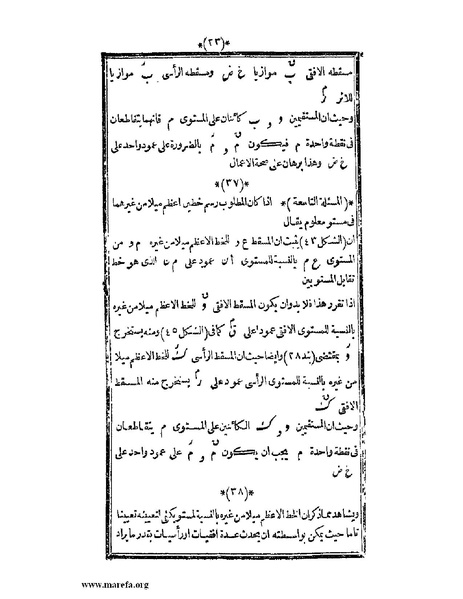 *(٢٣)*
مسقطه الافقى ب موازيا خ ض ومسقطه الرأسى ب موازيا
للاثر
وحيث ان المستقيمين و , ب كائنان على المستوى م فانهما يتقاطعان
فى نقطة واحدة م فيكون م و م بالضرورة على عمود واحد على
خ ض وهذا برهان على صحة الاعمال
*(٣٧)*
*(المسئلة التاسعة)* اذا كان المطلوب رسم خطين اعظم ميلا من غيرهما
فى مستو معلوم يقال
ان (الشكل ٤٣) يثبت ان المسقط ع و للخط الاعظم ميلا من غيره م و من
المستوى ع م بالنسبة للمستوى أن عمود على م ن الذى هو خط
تقابل المستويين
اذا تقرر هذا فلا بد وان يكون المسقط الافقى و للخط الاعظم ميلا من غيره
بالنسبة للمستوى الافقى عمودا على ق كما فى (الشكل ٤٥) ومنه يستخرج
و بمقتضى (بند ٢٨) وايضا حيث ان المسقط الرأسى ك للخط الاعظم ميلا
من غيره بالنسبة للمستوى الرأسى عمود على ر يستخرج منه المسقط
الافقى ك
وحيث ان المستقيمين و , ك الكائنين على المستوى م يتقاطعان
فى نقطة واحدة م يجب ان يكون م و م على عمود واحد على
خ ض
*(٣٨)*
ويشاهد مما ذكر ان الخط الاعظم ميلا من غيره بالنسبة لمستو يكفى لتعيينه تعيينا
تاما حيث يمكن بواسطته ان يحدث عدة افقيات او رأسيات بقدر ما يراد
www.marefa.org